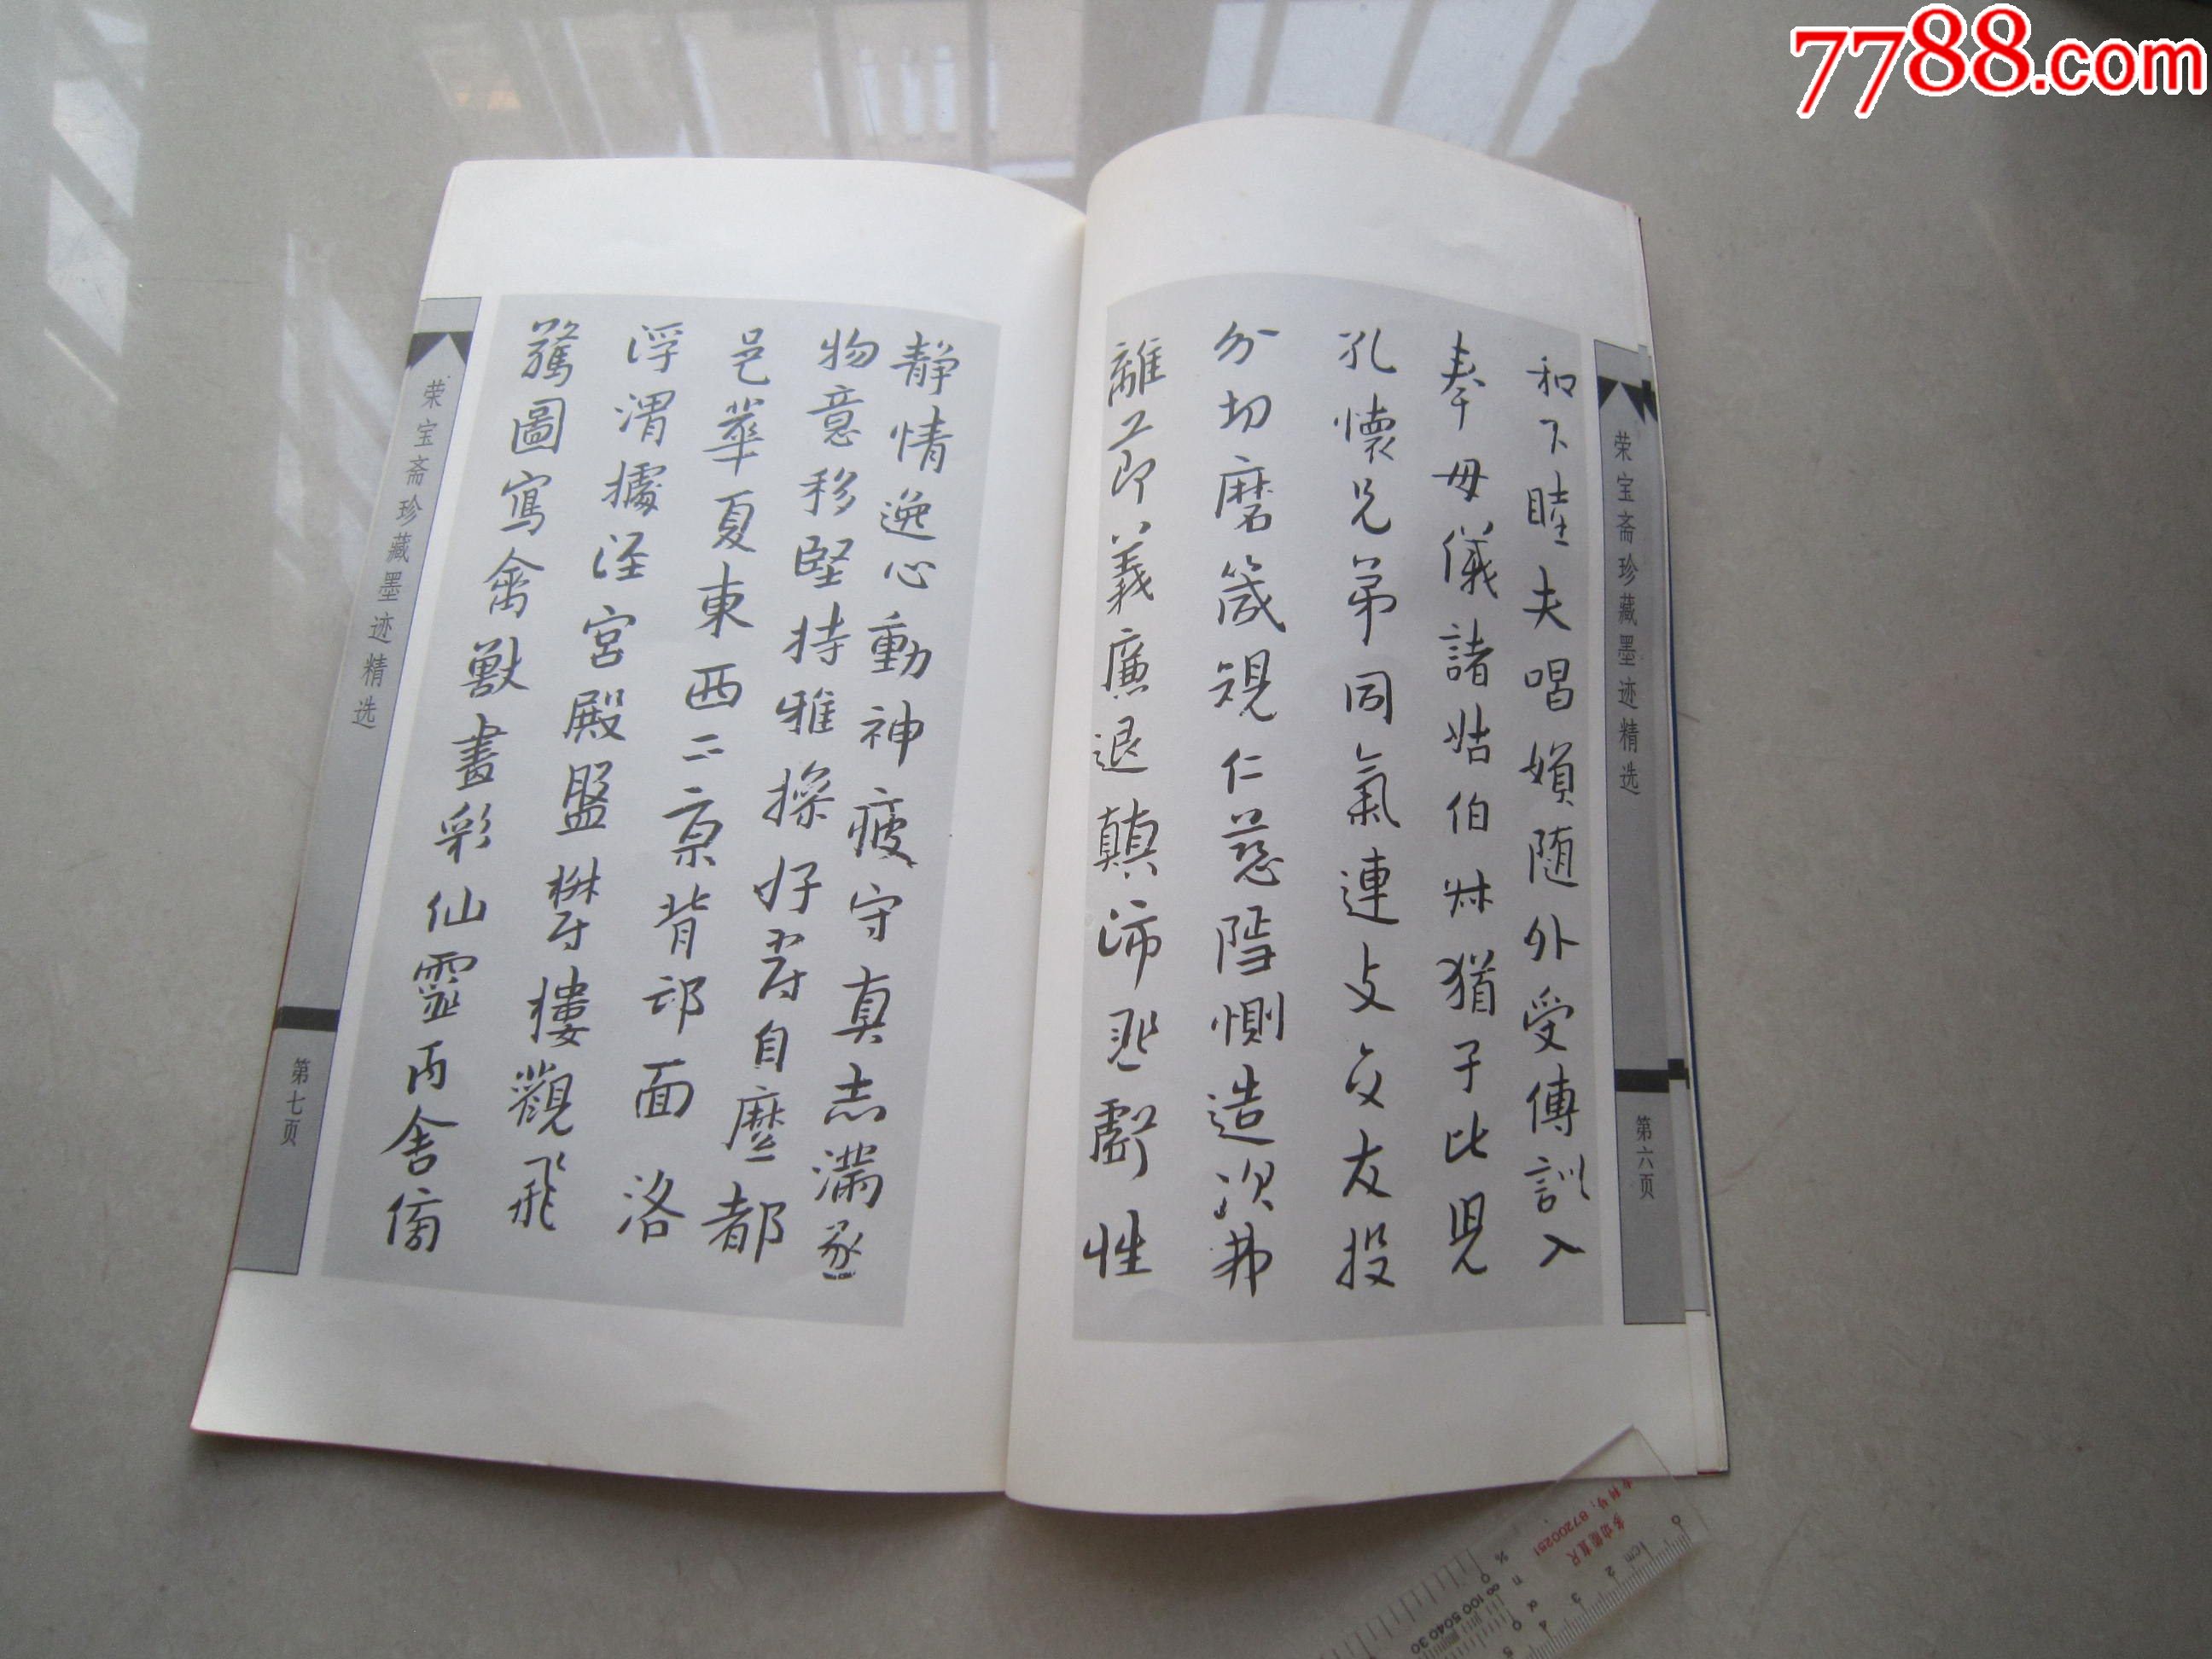 7788.com
荣宝斋珍藏墨迹精选
第六页
和下睦夫唱婦随外受傅訓入
奉母儀諸姑伯叔猶子比兒
孔懷兄弟同氣連支交友投
分切磨箴規仁慈隱惻造次弗
離節義廉退顛沛匪虧性
静情逸心動神疲守真志滿逐
物意移堅持雅操好爵自縻都
邑華夏東西二京背邙面洛
浮渭據涇宮殿盤鬱樓觀飛
驚圖寫禽獸畫彩仙靈丙舍傍
荣宝斋珍藏墨迹精选
第七页
多功能直尺